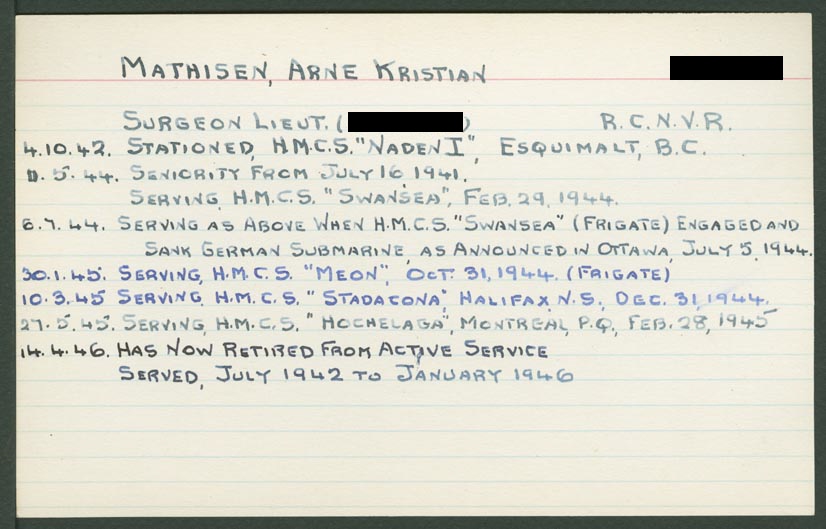 MATHISEN, ARNE KRISTIAN
SURGEON LIEUT. ( ) R.C.N.V.R.
4.10.42. STATIONED, H.M.C.S. "NADEN I", ESQUIMALT, B.C.
11.5.44. SENIORITY FROM JULY 16, 1941.
SERVING, H.M.C.S. "SWANSEA", FEB. 29, 1944.
6.7.44. SERVING AS ABOVE WHEN H.M.C.S. "SWANSEA" (FRIGATE) ENGAGED AND
SANK GERMAN SUBMARINE, AS ANNOUNCED IN OTTAWA, JULY 5, 1944.
30.1.45. SERVING, H.M.C.S. "MEON", OCT. 31, 1944. (FRIGATE)
10.3.45 SERVING, H.M.C.S. "STADACONA", HALIFAX, N.S., DEC. 31, 1944.
27.5.45. SERVING, H.M.C.S. "HOCHELAGA", MONTREAL, P.Q., FEB. 28, 1945
14.4.46. HAS NOW RETIRED FROM ACTIVE SERVICE
SERVED, JULY 1942 TO JANUARY 1946